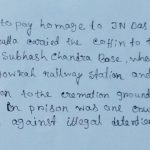 to pay homage to JN Das
carried the coffin to t
Subhash Chandra Bose, whe
Howrah railway station and
on to the cremation ground
in prison was one cru
against illegal detention